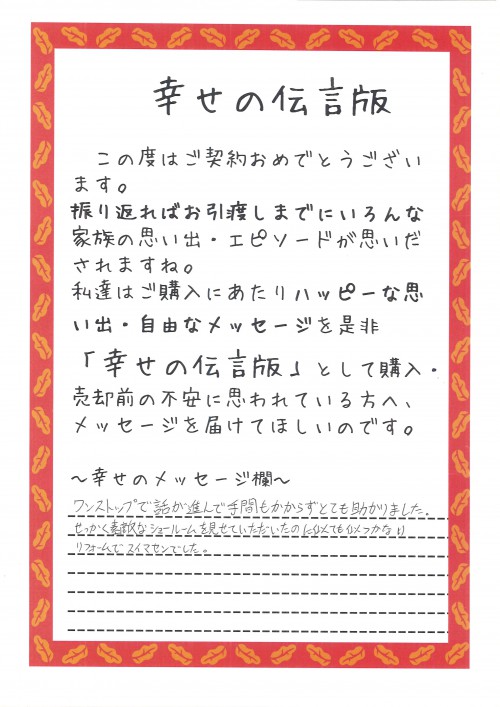 幸せの伝言版
この度はご契約おめでとうござい
ます。
振り返ればお引渡しまでにいろんな
家族の思い出・エピソードが思いだ
されますね。
私達はご購入にあたりハッピーな思
い出・自由なメッセージを是非
「幸せの伝言版」として購入・
売却前の不安に思われている方へ、
メッセージを届けてほしいのです。
～幸せのメッセージ欄～
ワンストップで話が進んで手間もかからずとても助かりました。
せっかく素敵なショールームを見せていただいたのに
リフォームで スイマセンでした。